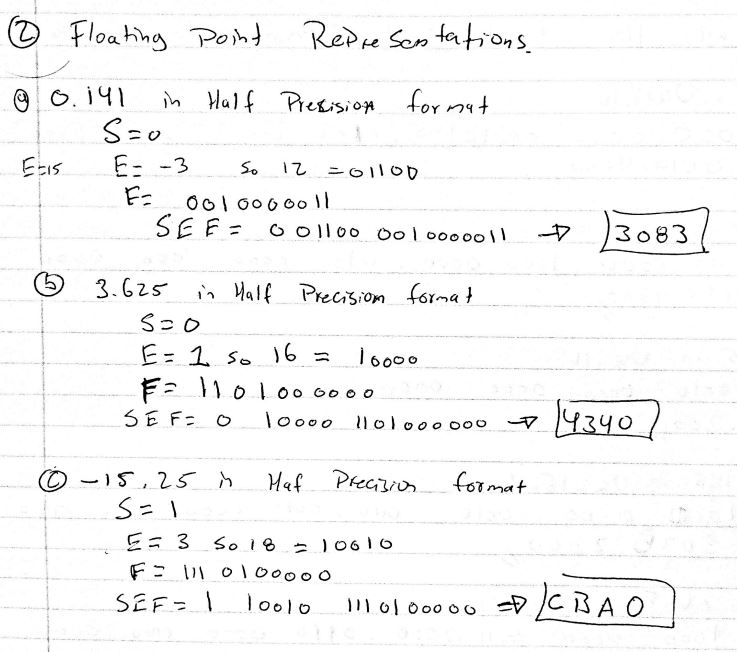 ② Floating Point Representations.
ⓐ 0.141 in Half Precision format
S=0
E=15 E= -3 so 12 = 01100
F= 0010000011
SEF= 0 01100 0010000011 ⇒ 3083
ⓑ 3.625 in Half Precision format
S=0
E= 1 so 16 = 10000
F= 1101000000
SEF= 0 10000 1101000000 ⇒ 4340
ⓒ -15.25 in Haf Precision format
S= 1
E= 3 so 18 = 10010
F= 1110100000
SEF= 1 10010 1110100000 ⇒ CBA0